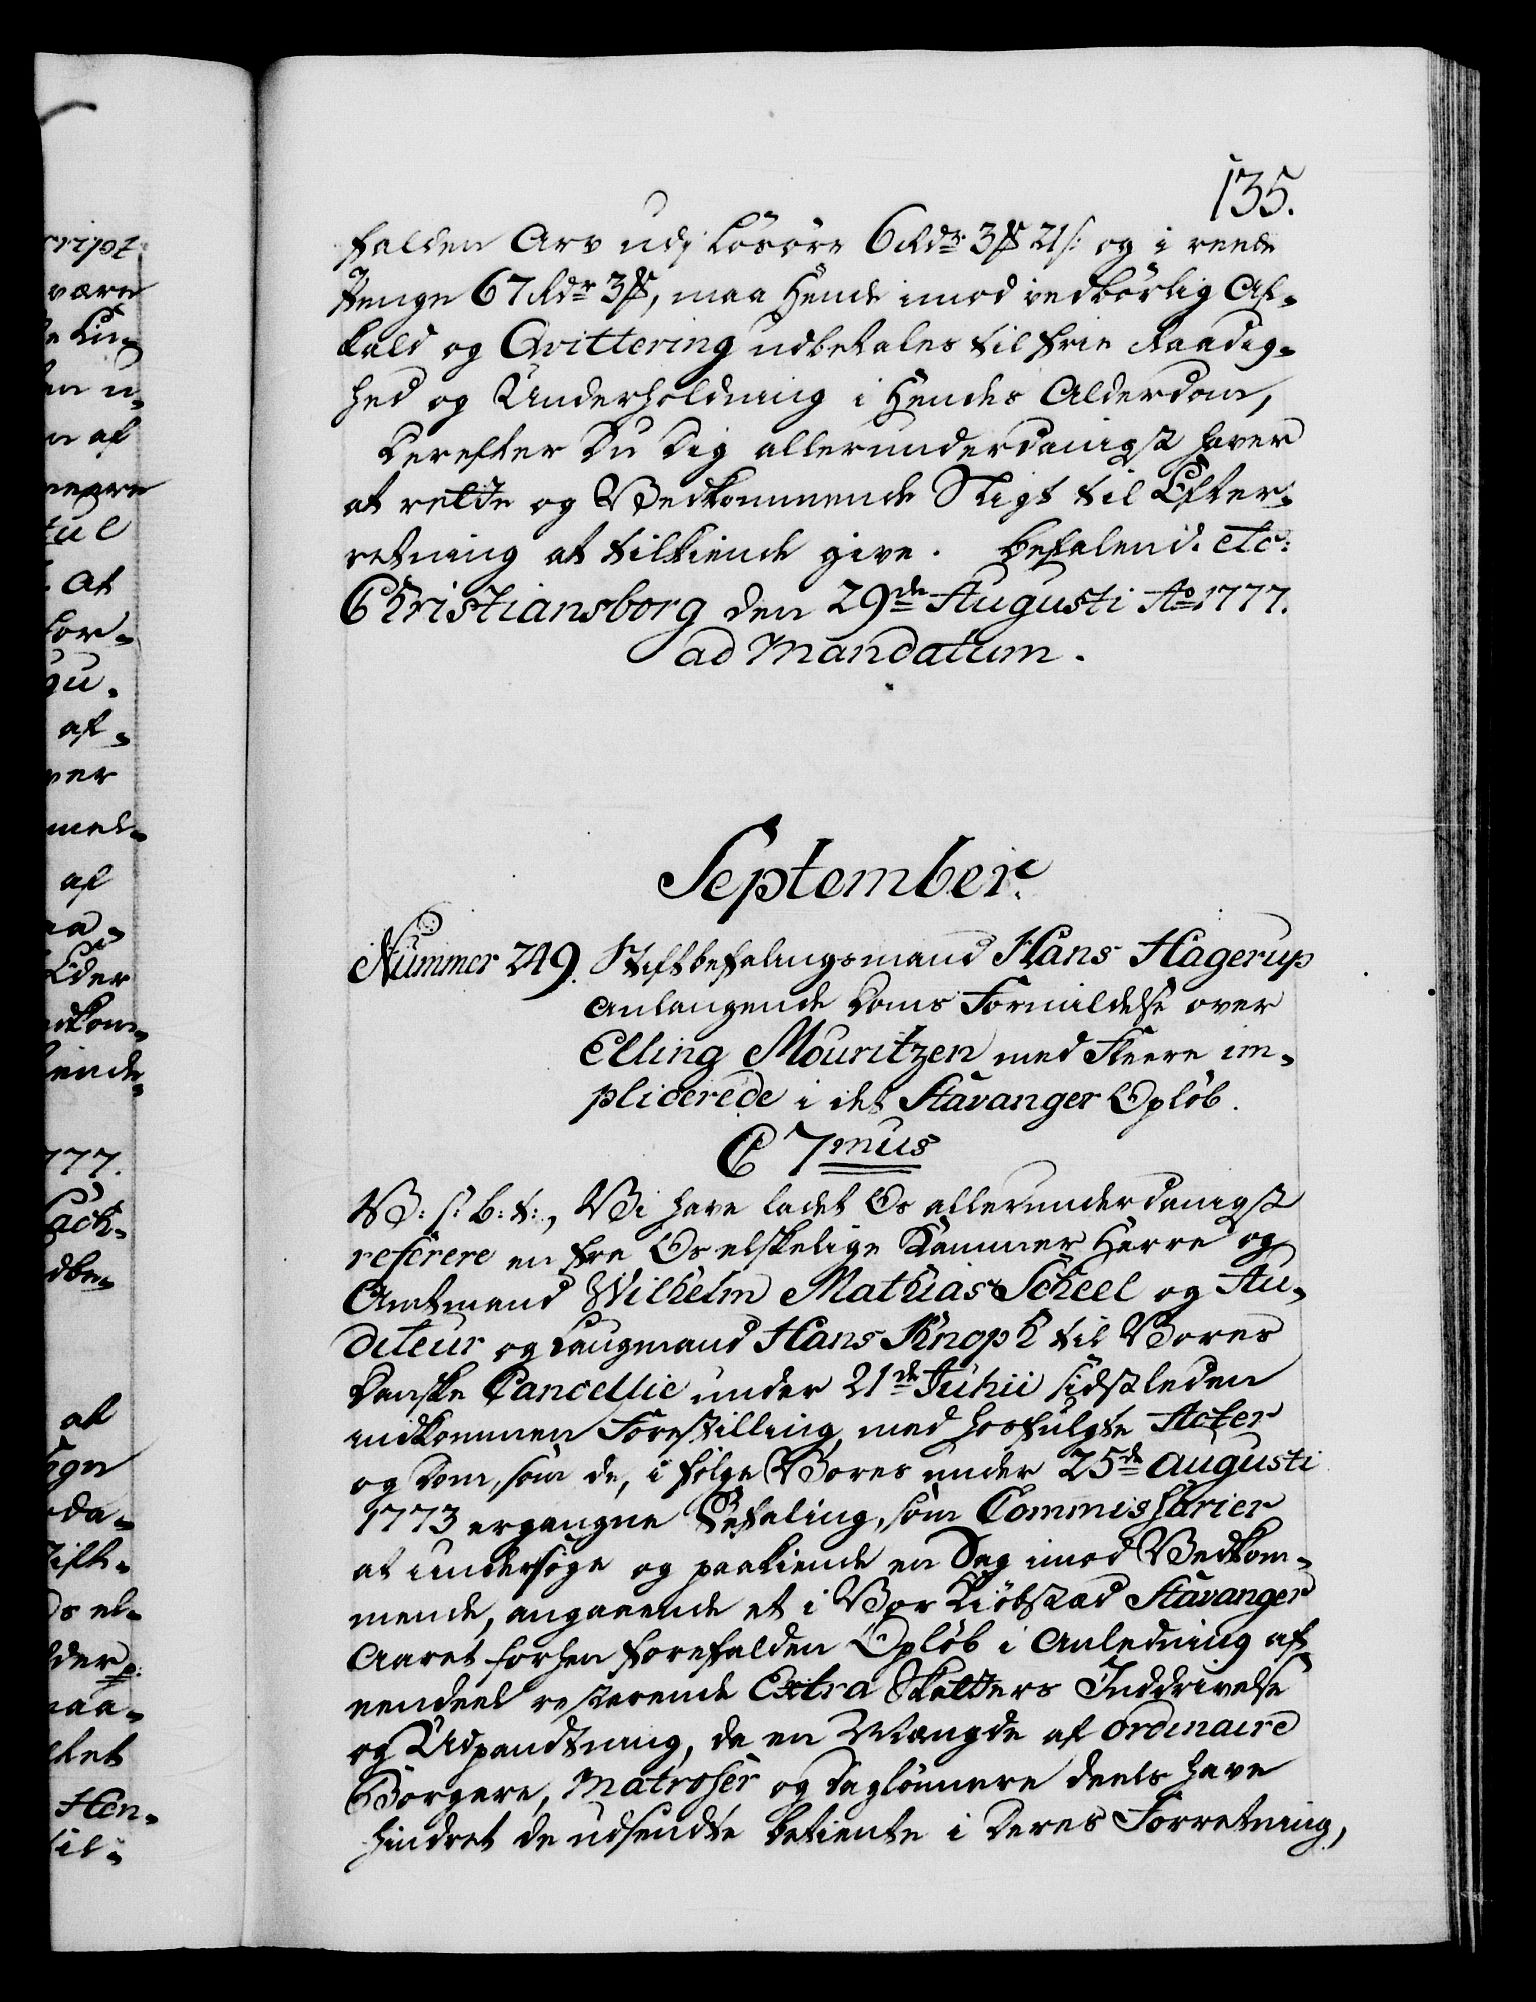 135.
falden Arv udj Løsøre 6 Rdr 3 ß 21 s: og i reede
Penge 67 Rdr 3 ß, maa Hende imod vedbørlig Af-
kald og Qvittering udbetales til frie Raadig-
hed og Underholdning i Hendes Alderdom,
Derefter Du Dig allerunderdanigst haver
at rette og Vedkommende Sligt til Efter-
retning at tilkiende give. Befalend. etc:
Christiansborg den 29de Augusti Ao 1777.
ad Mandatum.
September.
Nummer 249. Stiftbefalingsmand Hans Hagerup
anlangende Doms Formildelse over
Elling Mouritzen med Fleere im-
plicerede i det Stavanger Opløb.
C 7mus
V: S: B: t:, Vi have ladet Os allerunderdanigst
referere en fra Os elskelige Kammer Herre og
Amtmand Wilhelm Mathias Scheel og Au-
diteur og Laugmand Hans Knoph til Vores
Danske Cancellie under 21de Junii sidstleden
indkommen Forestilling med hosfulgte Acter
og Dom, som de, i følge Vores under 25de Augusti
1773 ergangne Befaling, som Commissarier
at undersøge og paakiende en Sag imod Vedkom-
mende, angaaende et i Vor Kiøbstad Stavanger
Aaret forhen forefalden Opløb i Anledning af
eendeel resterende Extra Skatters Inddrivelse
og Udpandtning, da en Mængde af ordinaire
Borgere, Matroser og Daglønnere deels have
hindret de udsendte Betiente i Deres Forretning,